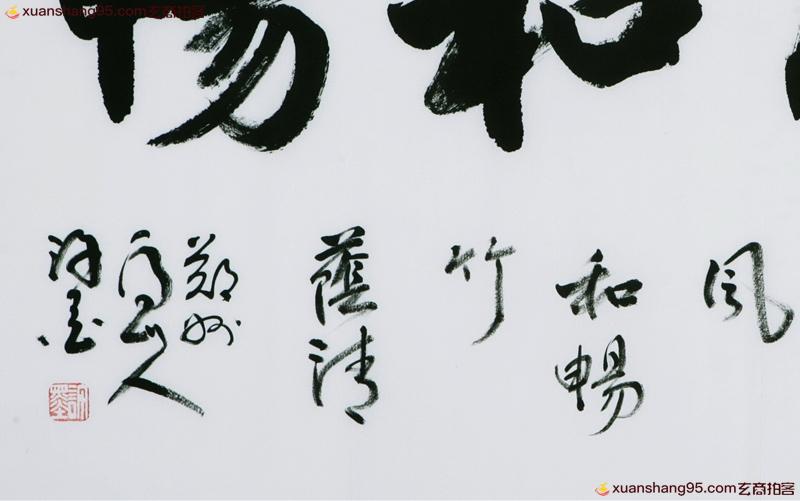 xuanshang95.com玄商拍客
和暢
风
和暢
竹
蔭清
郑州
山人
许墨
xuanshang95.com玄商拍客